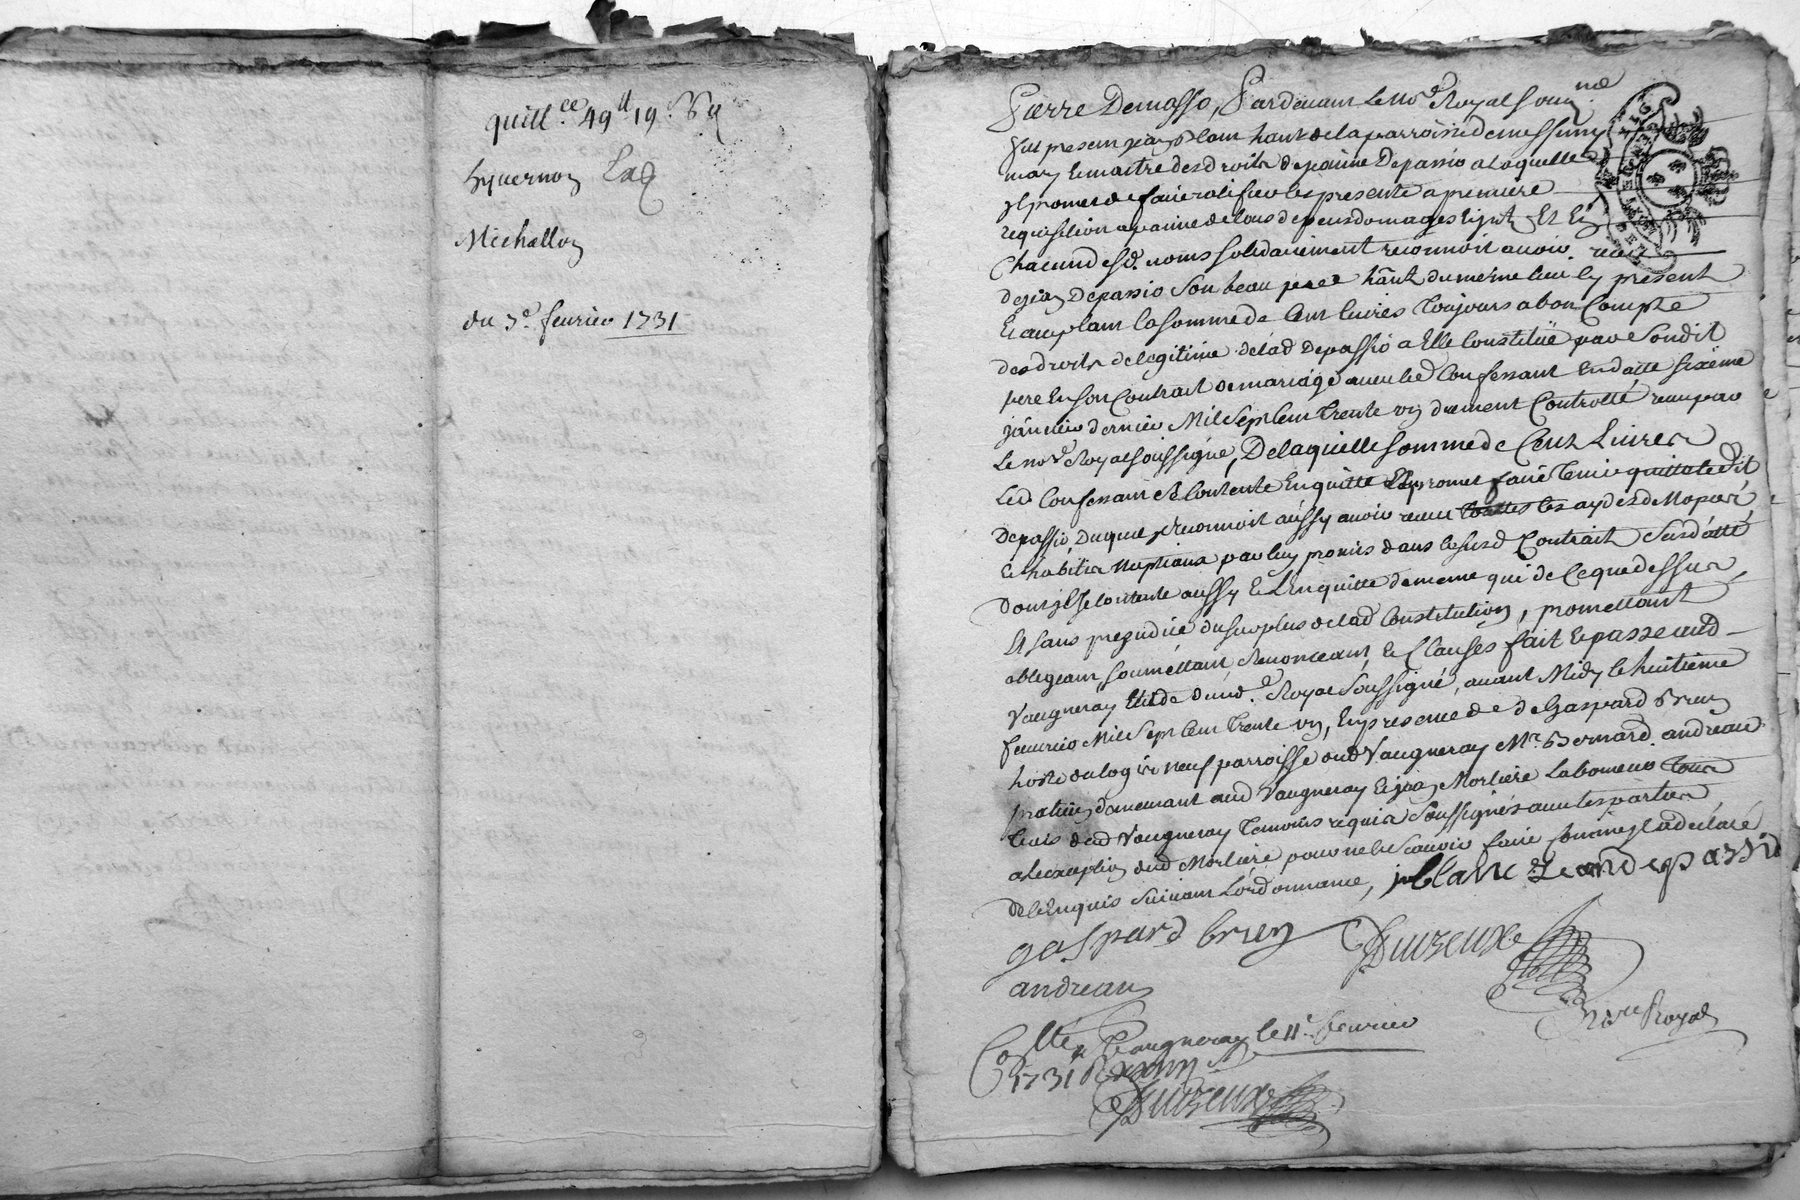 quitt.ce 49 ll 19 s
hyuernon
Michallon
du 7e feurier 1731
Pierre Demasso, Pardeuant Le nore Royal Soussigné
fut present jean blanc hant de la parroisse de messimy
mary & maitre des droits de jeanne Depassio a Laquelle
jl promet de faire ratiffier les presente a premiere
requisition a peine de tous depens domages & jnt Et En
Chacun desd. noms solidairement reconnoit auoir receu
de jean Depassio Son beau pere hant du meme lieu Cy present
Et acceptant la somme de Cent liures Toujours a bon Compte
des droits de legitime de lad Depassio a Elle Constitüé par Sondit
pere En son Contrait de mariage auec led Confessant En datte du sixieme
januier dernier Mil Sept Cent Trente un duement Controllé receu par
Le nore Royal soussigné, De laquelle somme de Cent Liures
Led Confessant Se Contente En quitte & promet faire Tenir quitte ledit
Depassio, Duquel jl reconnoit aussy auoir receu toutes les
Et habits Nuptiaux par luy promis dans le susd Contrait Susdatté
dont jl Se Contente aussy & L'En quitte de meme que de Ce que dessus,
Et sans prejudice du surplus de lad Constitution, promettant
obligeant soumettant Renonceant & Clauses fait & passé aud
Vaugneray Etude dud. nore Royal Soussigné, auant Midy le huitieme
feurier Mil Sept Cent Trente un, En presence de Gaspard Brun
hoste du logis neuf parroisse dud Vaugneray Mre Bernard andreau
praticien demeurant aud Vaugneray & jean Morliere Laboureur Tous
Trois dud Vaugneray Temoins requis Soussignés auec les parties
a l'exception dud Morliere pour ne le scauoir faire comme jl a declaré
de ce Enquis Suiuant L'ordonnance, j blanc Jean depassio
gaspard brun
andreau
nore Royal
Collé a Vaugneray le 11e feurier
1731